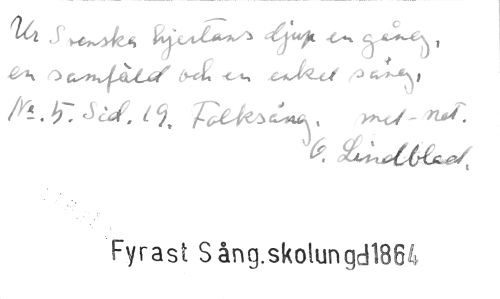 Ur Svenska hjertans djup en gång,
en samfäld och en enkel sång,
No. 5. Sid. 19. Folksång. met-not.
O. Lindblad.
Fyrast Sång.skolungd1864